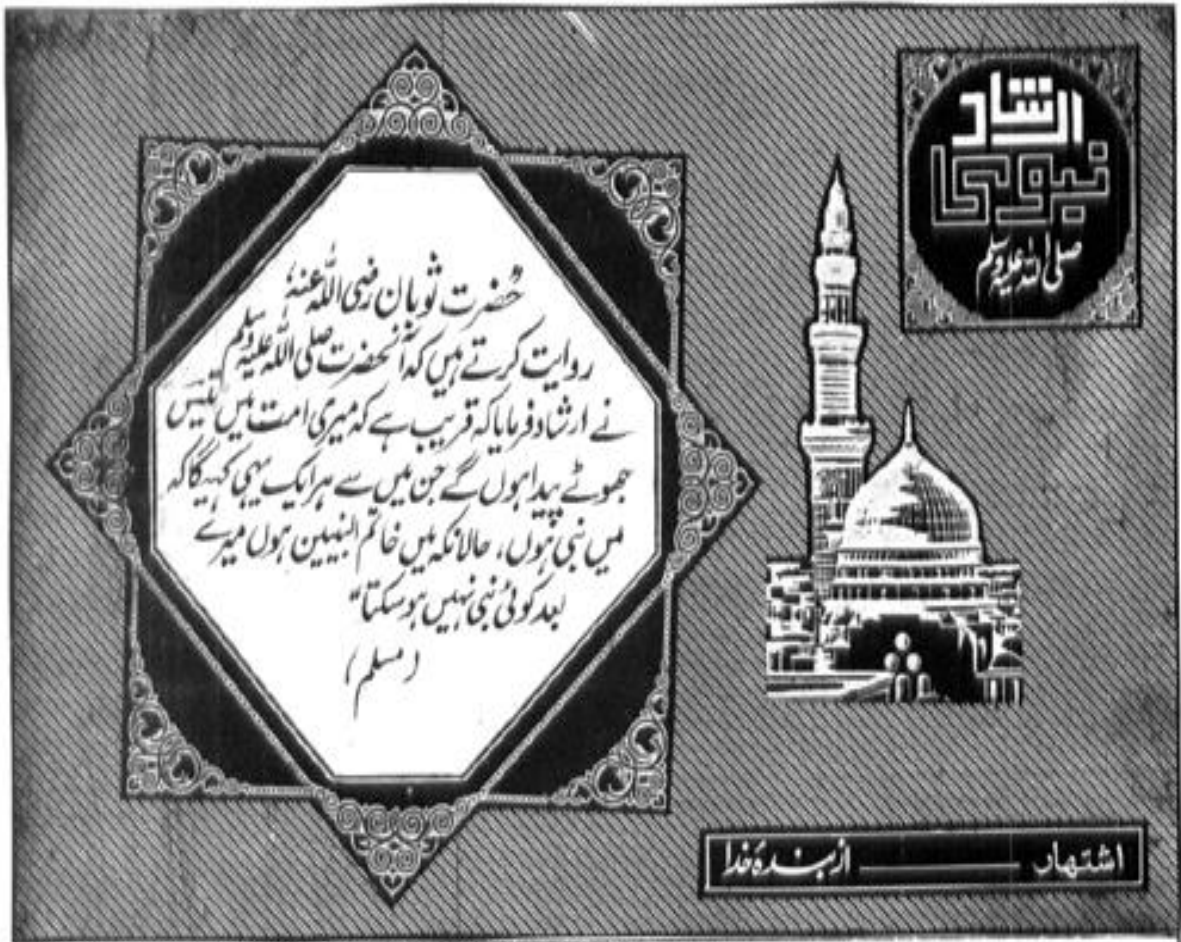 ارشاد
نبوی
صلی اللہ علیہ وسلم
”حضرت ثوبان رضی اللہ عنہٗ
روایت کرتے ہیں کہ آنحضرت صلی اللہ علیہ وسلم
نے ارشاد فرمایا کہ قریب ہے کہ میری امت میں تیس
جھوٹے پیدا ہوں گے جن میں سے ہر ایک یہی کہیگا کہ
میں نبی ہوں، حالانکہ میں خاتم النبیین ہوں میرے
بعد کوئی نبی نہیں ہو سکتا“
(مسلم)
اشتہار ——— از بندۂ خدا